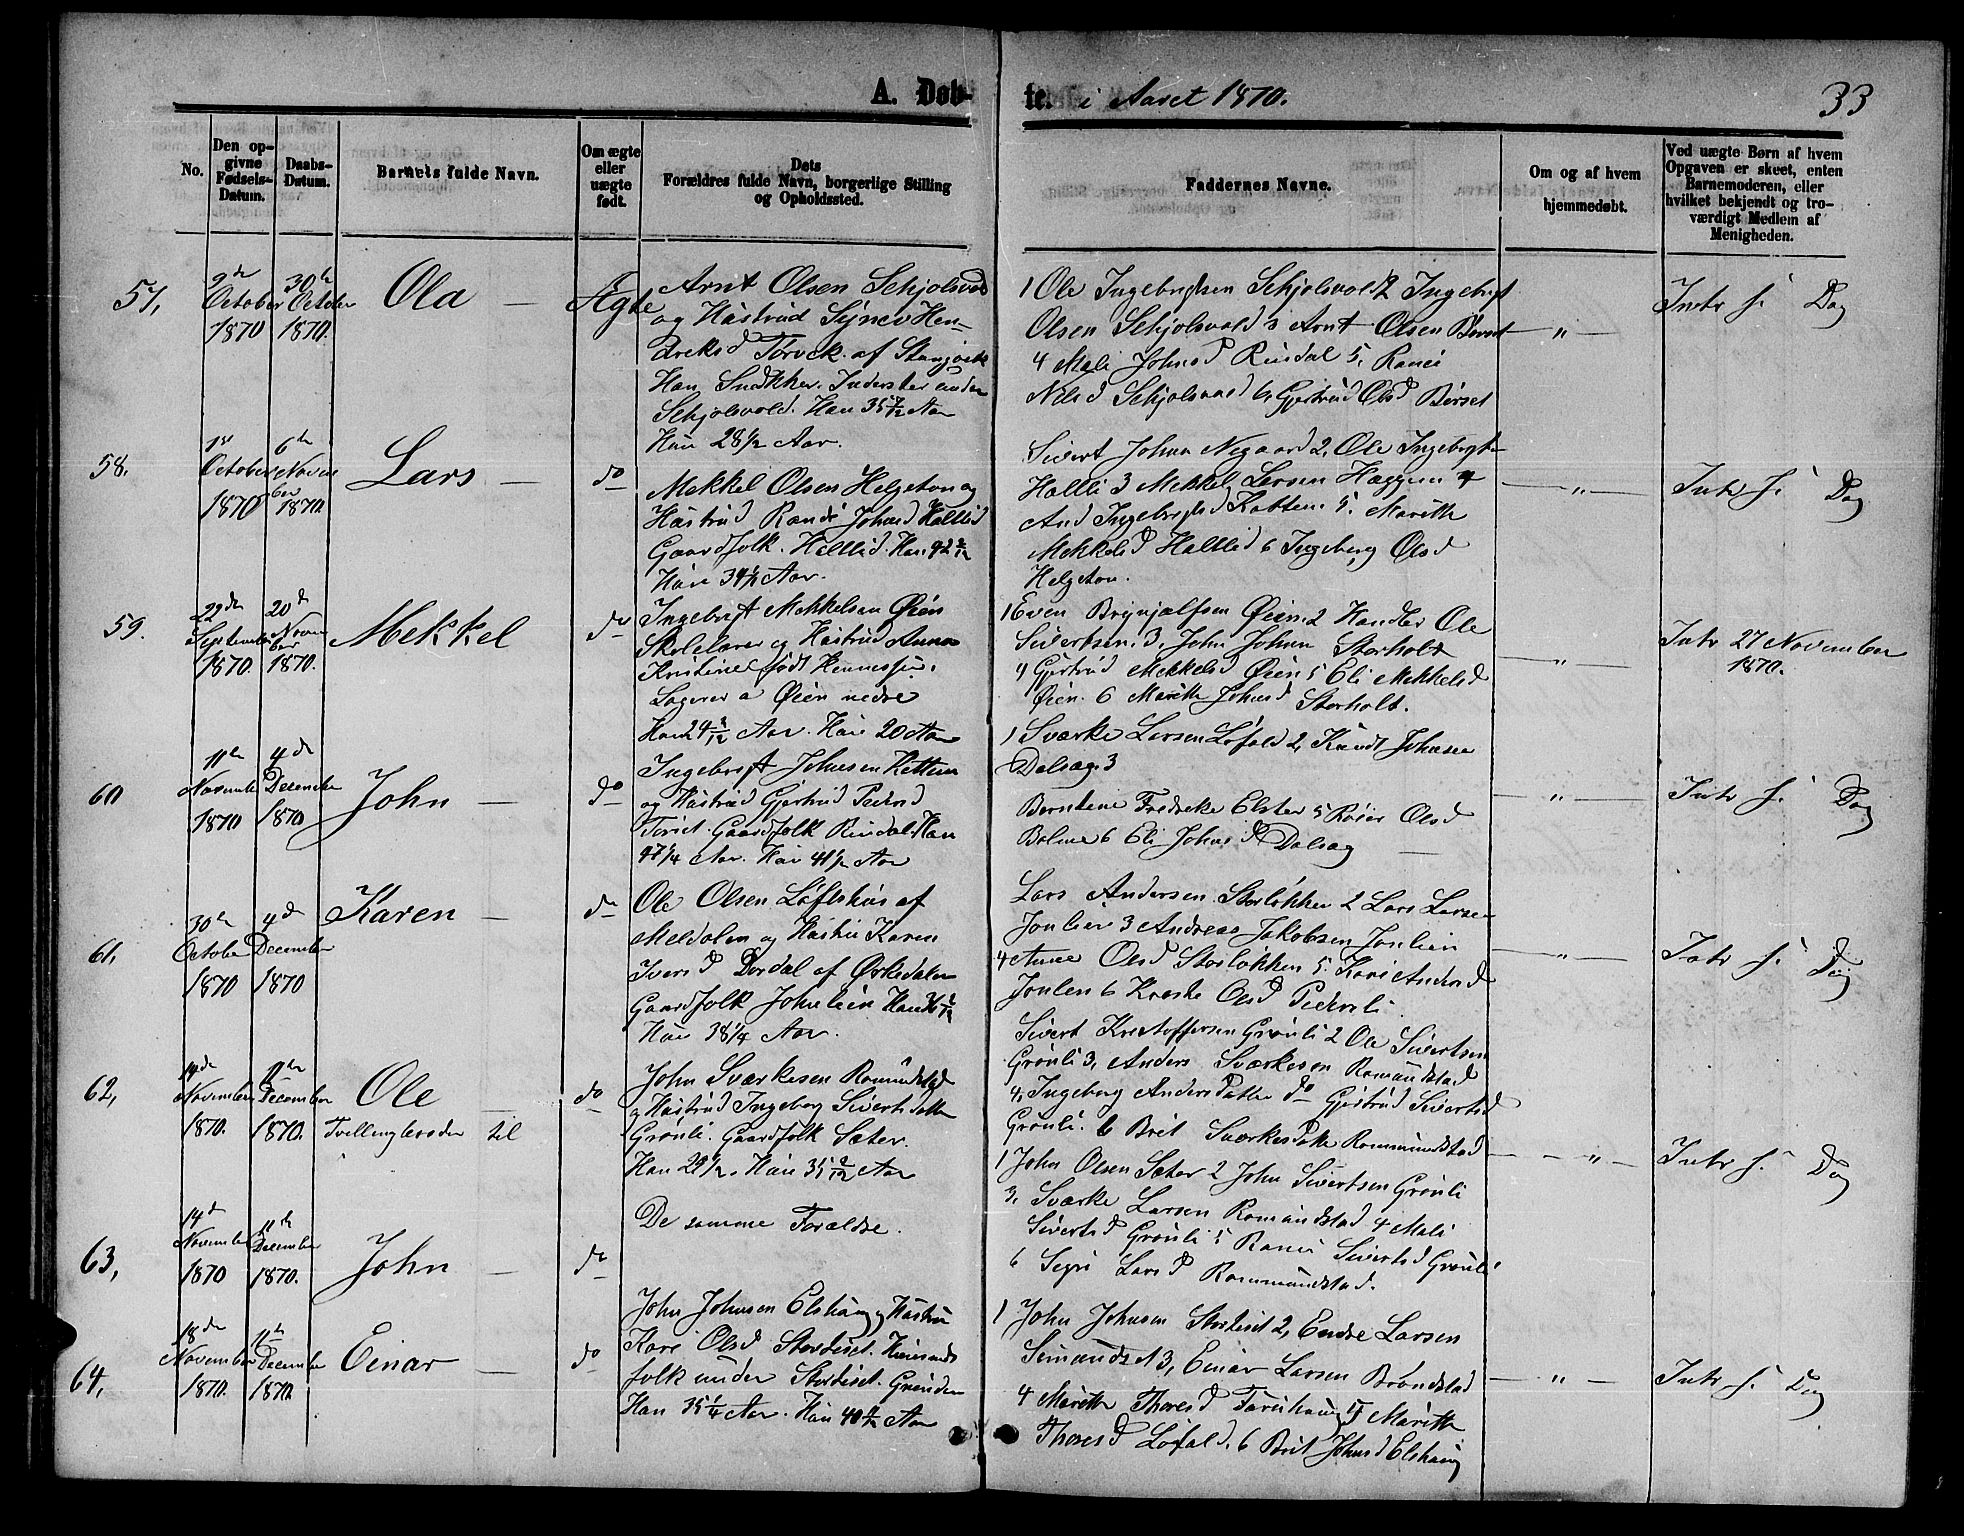 A. Døb-
te. i Aaret 1870.
33
No.
Den op-
givne
Fødsels-
Datum.
Daabs-
Datum.
Barnets fulde Navn.
Om ægte
eller
uægte
født.
Dets
Forældres fulde Navn, borgerlige Stilling
og Opholdssted.
Faddernes Navne.
Om og af hvem
hjemmedøbt.
Ved uægte Børn af hvem
Opgaven er skeet, enten
Barnemoderen, eller
hvilket bekjendt og tro-
værdigt Medlem af
Menigheden.
57,
9de
October
1870
30te
October
1870.
Ola —
Ægte
Arnt Olsen Schjølsvold
og Hustrud Hen-
dreksd Torvek. af
Han Snækker. Inderster under
Schjølsvold. Han 35 Aar
Hun 28 1/2 Aar.
1 Ole Ingebrigtsen Schjølsvold 2 Ingebrigt
Olsen Schjølsvold 3 Arnt Olsen Børset
4 Mali Johnsd Rindal 5, Ranei
Nilsd Schjølsvold 6, Gjertrud Olsd Børset
— " —
Intr s. Dag
58.
1st
October
1870
6te
Novem
ber
1870.
Lars —
do
Mekkel Olsen Helgeton og
Hustrud Randi Johnsd Haltlid
Gaardfolk. Haltlid. Han 42
Hun 34 Aar.
Sivert Johnsen Negaard 2, Ole Ingebrigts
Haltli 3 Mekkel Larsen Haggen 4
And Ingebrigtsd Kattem 5. Marith
Mekkelsd Haltlid 6 Ingeborg Olsd
Helgeton.
— " —
Intr s. Dag
59.
22de
September
1870.
20de
Novem
ber
1870.
Mekkel
do
Ingebrigt Mekkelsen Øien
Skolelærer og Hustrud Anna
Kristine født
Logerer a Øien nedre
Han 24 Aar. Hun 20 Aar
1 Even Brynjulfsen Øien. 2 Handler Ole
Sivertsen. 3, John Johnsen Storholt
4 Gjertrud Mekkelsd Øien 5 Eli Mekkelsd
Øien. 6 Marith Johnsd Storholt.
— " —
Intr 27 November
1870.
60
11te
November
1870
4de
December
1870
John —
do
Ingebrigt Johnsen Kattem
og Hustrud Gjertrud Pedersd
Toriset. Gaardfolk Rindal. Han
47 1/4 Aar. Hun 41 1/2 Aar
1 Sværke Larsen Løfald 2, Knudt Johnsen
Dalsæg. 3
Berntine Fredreke Elster 5 Røier Olsd
Bolme 6 Eli Johnsd Dalsæg —
— " —
Intr s. Dag
61,
30te
October
1870
4de
December
1870
Karen —
do
Ole Olsen Løftshus af
Meldalen og Hustru Karen
Iversd Dordal af Ørkedalen
Gaardfolk Johnlien Han
Hun 38 1/4 Aar.
Lars Andersen Storløkken 2 Lars Larsen
Jonlien 3 Andreas Jakobsen Jonlien
4 Anne Olsd Storløkken 5. Kari Andersd
Jonlien 6 Olsd Pederli
— " —
Intr s. Dag
62,
14de
November
1870.
11te
December
1870.
Ole
Tvillingbroder til
do
John Sværkesen Romundstad
og Hustrud Ingeborg Sivertsdatter
Grønli. Gaardfolk Sæter.
Han 29 1/2. Hun 35 Aar
Sivert Kristoffersen Grønli 2 Ole Sivertsen
Grønli 3, Anders Sværkesen Romundstad
4, Ingeborg Andersdatter do Gjertrud Sivertsd
Grønli. 6 Brit Sværkesdatter Rommundstad
— " —
Intr s. Dag
63,
14de
November
1870
11te
December
1870.
John —
do
De samme Forældre.
1 John Olsen Sæter 2 John Sivertsen Grønli
3, Sværke Larsen Romundstad 4 Mali
Sivertsd Grønli 5 Ranei Sivertsd Grønli
6 Segri Larsd Rommundstad.
64,
18de
November
1870.
11te
December
1870.
Einar —
do
John Johnsen Elshaug og Hustru
Kari Olsd Stortiset.
folk under Stortiset. Grinden
Han 35 1/4 Aar. Hun 40 Aar
1 John Johnsen Stortiset 2, Endre Larsen
Simundset 3, Einar Larsen Brøndstad
4 Marith Thoresd 5 Marith
Thoresd Løfald. 6 Brit Johnsd Elshaug
— " —
Intr s. Dag